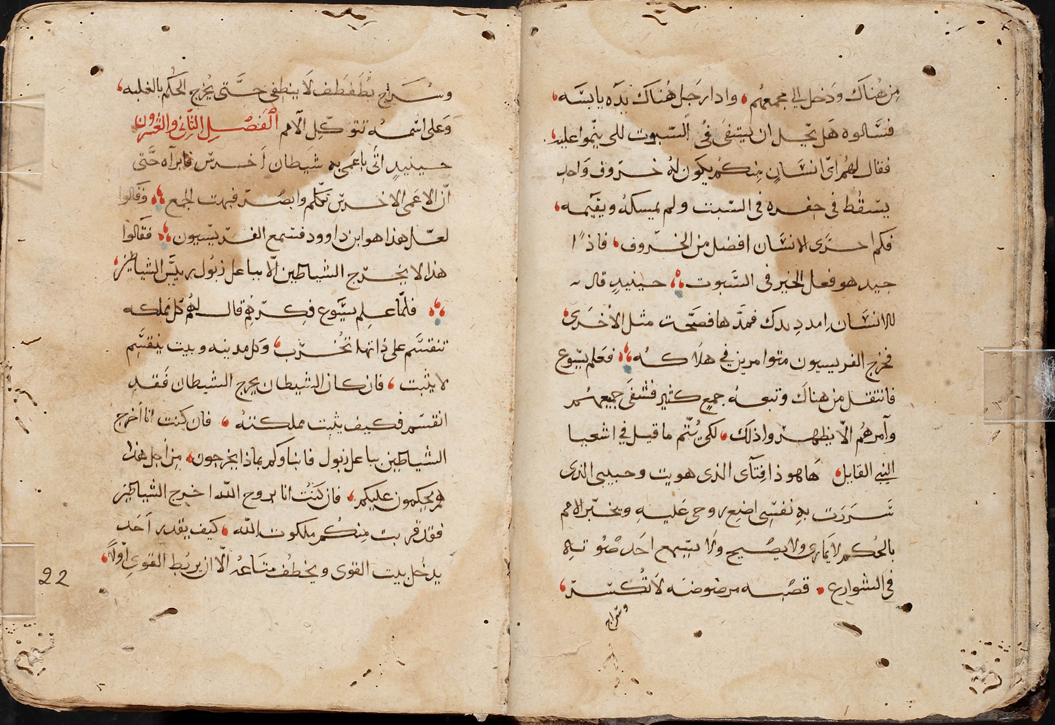 من هناك ودخل الى مجمعهم، واذا رجل هناك يده يابسه،
فسالوه هل يحل ان يشفى في السبوت لكي ينموا عليه،
فقال لهم اي انسان منكم يكون له خروف واحد
يسقط في حفره في السبت ولم يمسكه ويقيمه،
فكم احرى الانسان افضل من الخروف، فاذًا
جيد هو فعل الخير في السبوت حينيذ قال
للانسان امدد يدك فمدها فصحت مثل الاخرى،
فخرج الفريسيون متوامرين في هلاكه فعلم يسوع
فانتقل من هناك وتبعه جمع كثير فشفى جميعهم
وامرهم الا يظهروا ذلك، لكي يتم ما قيل في اشعيا
النبي القايل، هاهوذا فتاى الذي هويت وحبيبي الذي
سررت به نفسي اضع روحي عليه ويخبر الامم
بالحكم لا يماري ولا يصيح ولا يسمع احد صوته
في الشوارع، قصبه مرضوضه لا تكسر،
وسراج
وسراج يطفطف لا ينطفى حتى يخرج الحكم بالغلبه،
وعلى اسمه تتوكل الامم الفصل الثاني والعشرون
حينيذ اتى باعمى به شيطان اخرس فابراه حتى
ان الاعمى الاخرس تكلم وابصر فبهت الجمع وقالوا
لعل هذا هو ابن داوود فسمع الفريسيون فقالوا
هذا لا يخرج الشياطين الا بباعلزبول رييس الشياطين،
فلما علم يسوع فكرهم قال لهم كل مملكه
تنقسم على ذاتها تخرب، وكل مدينه وبيت ينقسم
لا يثبت، فان كان الشيطان يخرج الشيطان فقد
انقسم فكيف يثبت مملكته، فان كنت انا اخرج
الشياطين بباعلزبول فابناوكم بماذا يخرجون، من اجل هذا
هم يحكمون عليكم، فان كنت انا بروح الله اخرج الشياطين
فقد قربت منكم ملكوت الله، كيف يقدر احد
يدخل بيت القوى ويخطف متاعه الا ان يربط القوي اولًا،
22